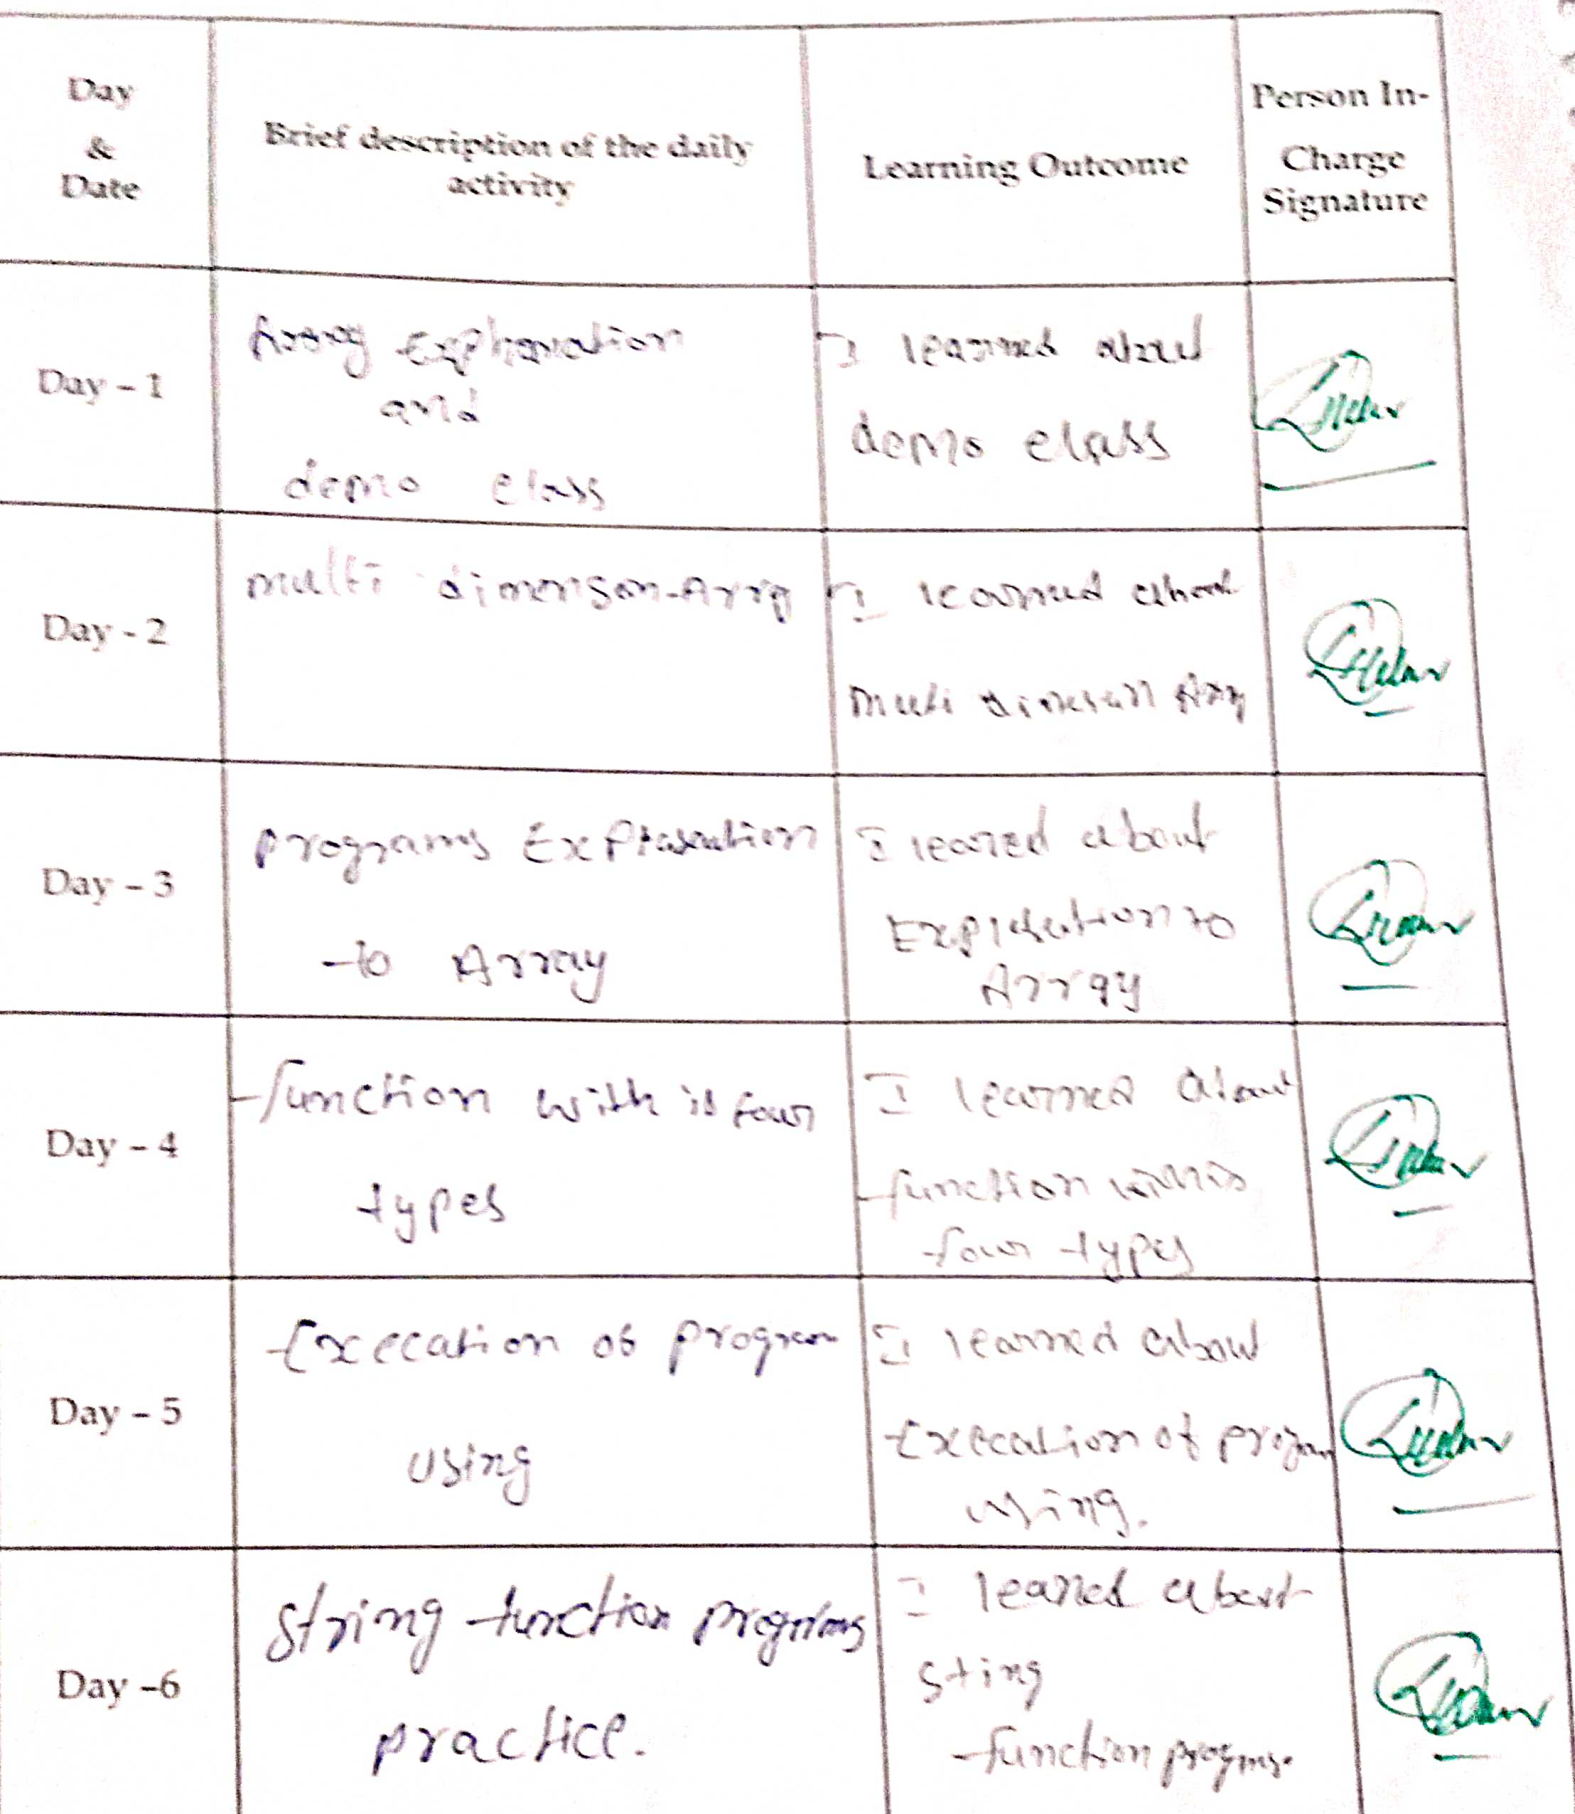 Day
&
Date
Brief description of the daily
activity
Learning Outcome
Person In-
Charge
Signature
Day - 1
Array Explanation
and
demo class
I learned about
demo class
Day - 2
multi dimenson-Array
I learned about
multi
Day - 3
programs Explanation
to Array
I leared about
to
Array
Day - 4
function with is four
types
I learned about
function
four types
Day - 5
Execcation of program
using
I learned about
Execcation of program
using.
Day -6
string function programs
practice.
I leared about
sting
function